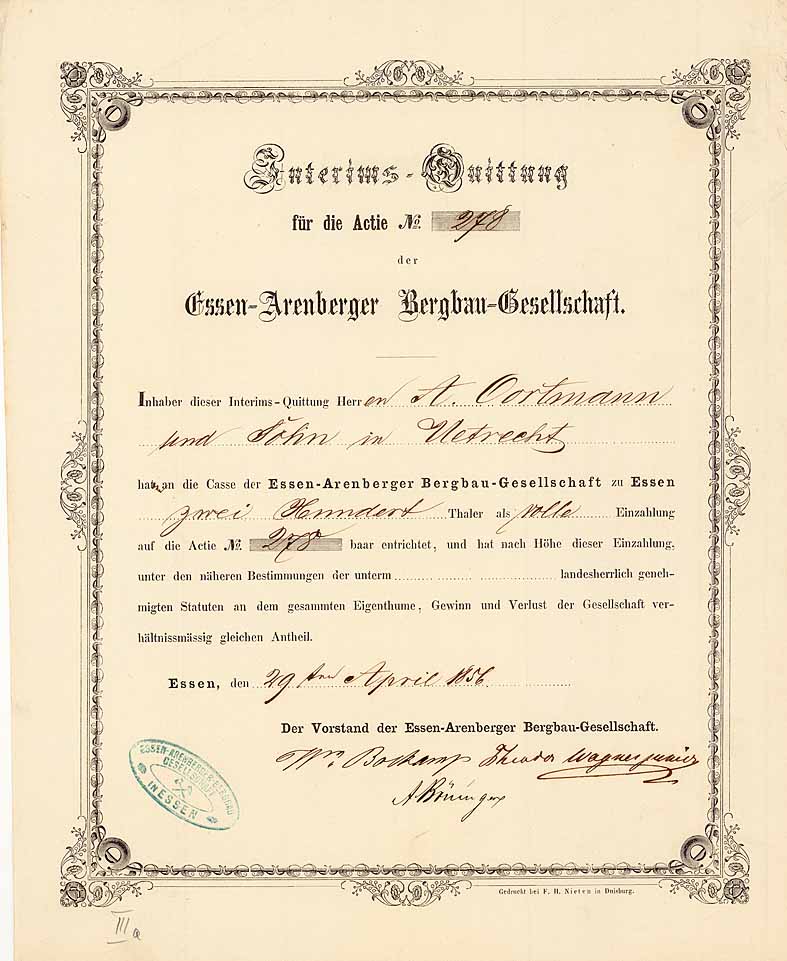 Interims-Quittung
für die Actie No. 278
der
Essen-Arenberger Bergbau-Gesellschaft.
Inhaber dieser Interims-Quittung Herren A. Oortmann
und Sohn in Uetrecht
hat an die Casse der Essen-Arenberger Bergbau-Gesellschaft zu Essen
zwei Hundert Thaler als volle Einzahlung
auf die Actie No. 278 baar entrichtet, und hat nach Höhe dieser Einzahlung,
unter den näheren Bestimmungen der unterm landesherrlich geneh-
migten Statuten an dem gesammten Eigenthume, Gewinn und Verlust der Gesellschaft ver-
hältnissmässig gleichen Antheil.
Essen, den 29ten April 1856.
Der Vorstand der Essen-Arenberger Bergbau-Gesellschaft.
Wm. Theodor Wagner junior
A.
ESSEN-ARENBERGER BERGBAU
GESELLSCHAFT
IN ESSEN
Gedruckt bei F. H. Nieten in Duisburg.
IIIa